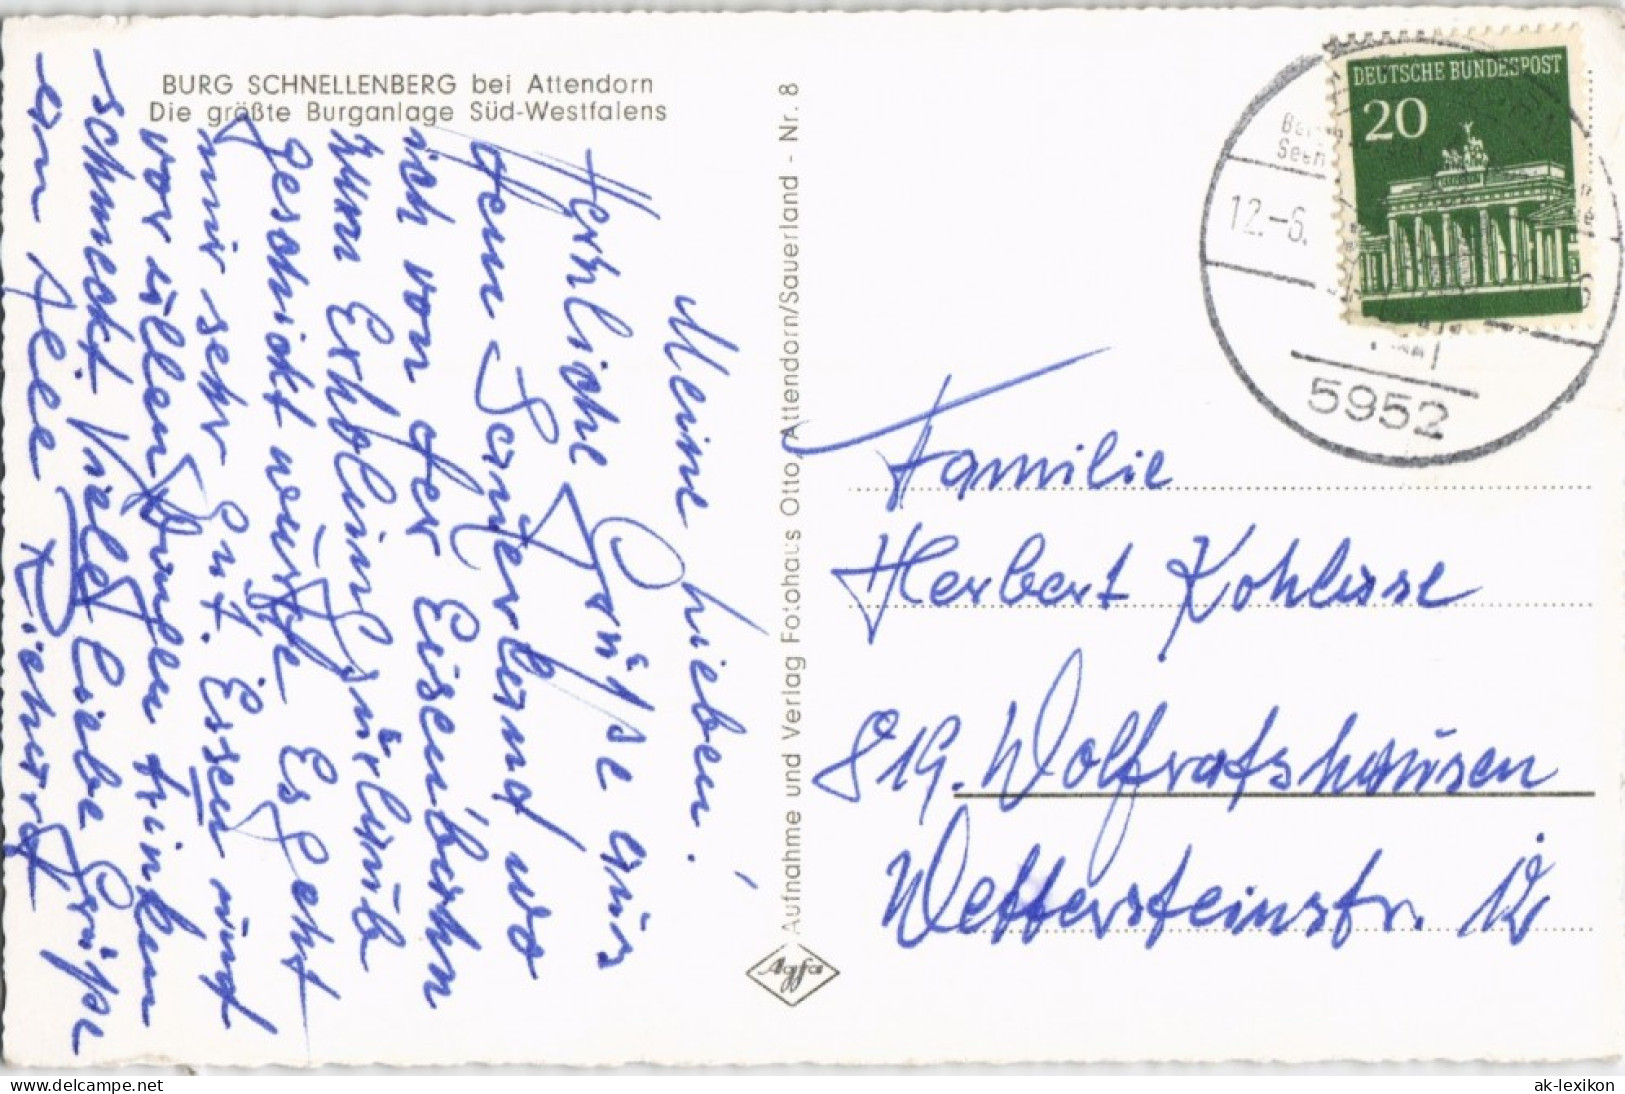 BURG SCHNELLENBERG bei Attendorn
Die größte Burganlage Süd-Westfalens
Meine Lieben!
Herzliche Grüße aus
dem Sauerland wo
ich von der Eisenbahn
zum Erholungsurlaub
geschickt wurde. Es geht
mir sehr gut. Essen und
vor allen Dingen trinken
schmeckt. Viele liebe Grüße
an Alle
Aufnahme und Verlag Fotohaus Otto, Attendorn/Sauerland - Nr. 8
Agfa
DEUTSCHE BUNDESPOST
20
12.-6.
5952
Familie
Herbert
819. Wolfratshausen
Wettersteinstr.
www.delcampe.net
ak-lexikon